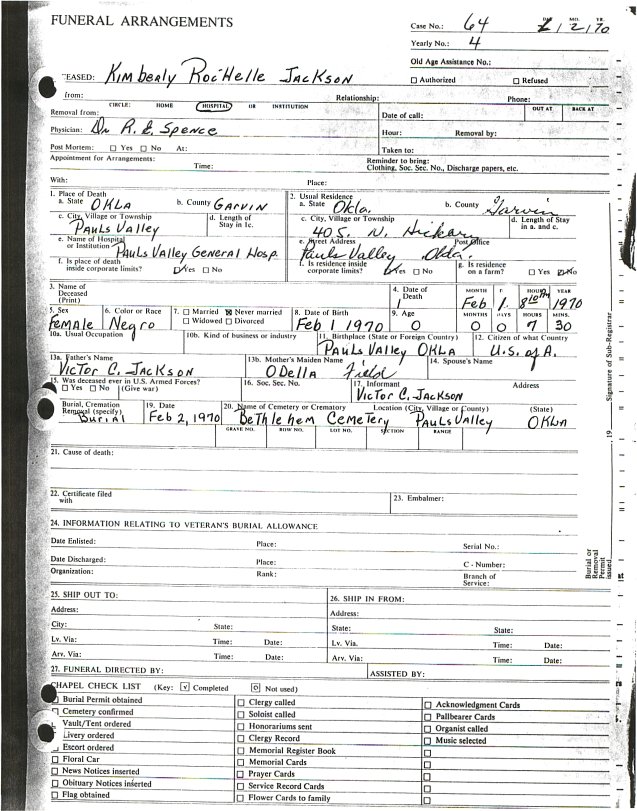 FUNERAL ARRANGEMENTS
Case No.: 64 MO. YR.
2 70
Yearly No.: 4
Old Age Assistance No.:
EASED: Kimbealy RocHelle JACKSON
☐ Authorized ☐ Refused
from: Relationship: Phone:
CIRCLE: HOME HOSPITAL OR INSTITUTION
Removal from:
Date of call: OUT AT BACK AT
Physician: Dr R. E. Spence
Hour: Removal by:
Post Mortem: ☐ Yes ☐ No At:
Taken to:
Appointment for Arrangements: Time:
Reminder to bring:
Clothing, Soc. Sec. No., Discharge papers, etc.
With: Place:
1. Place of Death
a. State OKLA b. County GARVIN
2. Usual Residence
a. State Okla. b. County Garvin
c. City, Village or Township Pauls Valley
d. Length of Stay in 1c.
c. City, Village or Township 405 N. Hickory
d. Length of Stay in a. and c.
e. Name of Hospital or Institution Pauls Valley General Hosp.
e. Street Address Pauls Valley Post Office Okla.
f. Is place of death inside corporate limits? ☑ Yes ☐ No
f. Is residence inside corporate limits? ☑ Yes ☐ No
g. Is residence on a farm? ☐ Yes ☑ No
3. Name of Deceased (Print)
4. Date of Death
MONTH HOUR YEAR
1 Feb 1. 8:10 PM 1970
5. Sex Female
6. Color or Race Negro
7. ☐ Married ☒ Never married
☐ Widowed ☐ Divorced
8. Date of Birth Feb 1 1970
9. Age 0
MONTHS DAYS HOURS MINS.
0 0 7 30
10a. Usual Occupation
10b. Kind of business or industry
11. Birthplace (State or Foreign Country) Pauls Valley OKLA
12. Citizen of what Country U.S. of A.
13a. Father's Name Victor C. Jackson
13b. Mother's Maiden Name ODella Field
14. Spouse's Name
15. Was deceased ever in U.S. Armed Forces?
☐ Yes ☐ No (Give war)
16. Soc. Sec. No.
17. Informant Victor C. Jackson Address
Burial, Cremation Removal (specify) Burial
19. Date Feb 2, 1970
20. Name of Cemetery or Crematory Bethlehem Cemetery
Location (City, Village or County) Pauls Valley (State) OKLA
GRAVE NO. ROW NO. LOT NO. SECTION RANGE
21. Cause of death:
22. Certificate filed with
23. Embalmer:
24. INFORMATION RELATING TO VETERAN'S BURIAL ALLOWANCE
Date Enlisted: Place: Serial No.:
Date Discharged: Place: C - Number:
Organization: Rank: Branch of Service:
25. SHIP OUT TO:
26. SHIP IN FROM:
Address:
Address:
City: State:
State: State:
Lv. Via: Time: Date:
Lv. Via. Time: Date:
Arv. Via: Time: Date:
Arv. Via: Time: Date:
27. FUNERAL DIRECTED BY: ASSISTED BY:
CHAPEL CHECK LIST (Key: ☑ Completed ☐ Not used)
☐ Burial Permit obtained
☐ Cemetery confirmed
Vault/Tent ordered
Livery ordered
Escort ordered
☐ Floral Car
☐ News Notices inserted
☐ Obituary Notices inserted
☐ Flag obtained
☐ Clergy called
☐ Soloist called
☐ Honorariums sent
☐ Clergy Record
☐ Memorial Register Book
☐ Memorial Cards
☐ Prayer Cards
☐ Service Record Cards
☐ Flower Cards to family
☐ Acknowledgment Cards
☐ Pallbearer Cards
☐ Organist called
☐ Music selected
Signature of Sub-Registrar
19
Burial or Removal Permit issued